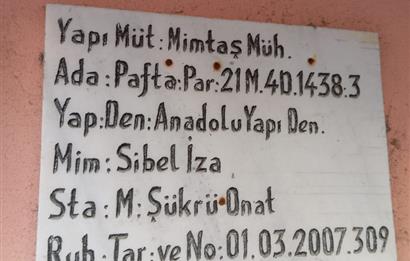 Yapı Müt: Mimtaş Müh.
Ada: Pafta:Par: 21 M.4D.1438:3
Yap:Den: Anadolu Yapı Den.
Mim: Sibel İza
Sta: M: Şükrü Onat
Ruh. Tar. ve No: 01.03.2007.309